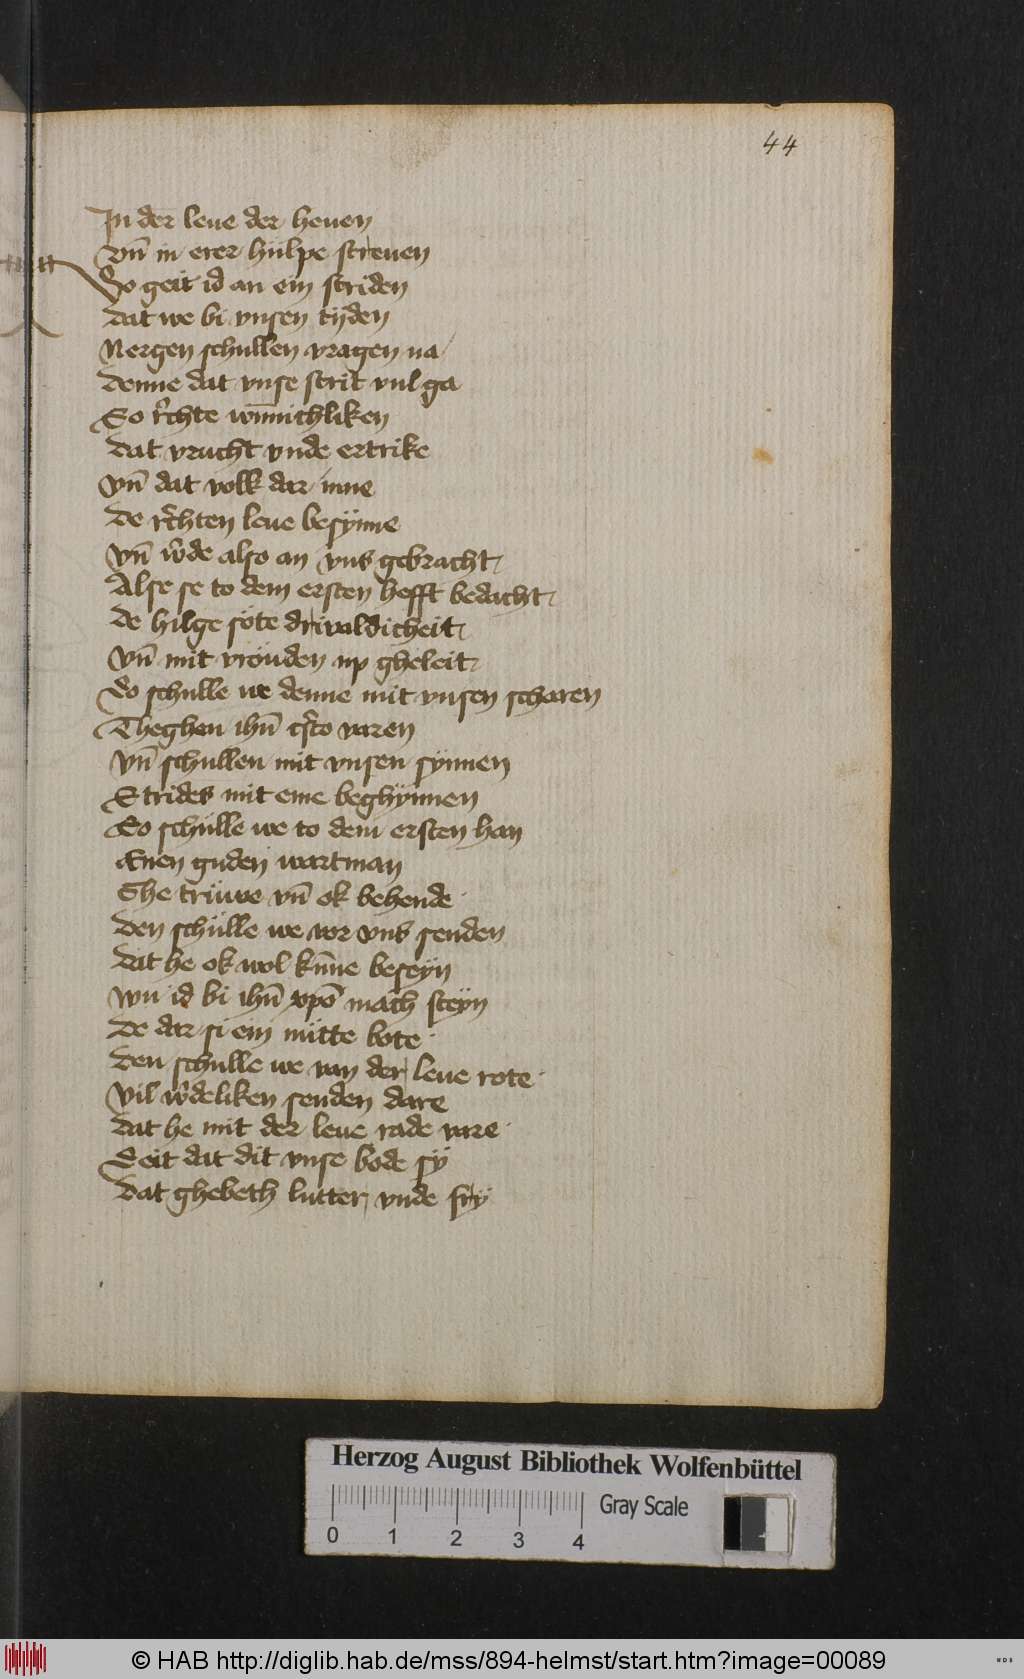 44
In der leue der heuen
vn̄ in erer hülpe streuen
So geit id an ein striden
dat we bi vnsen tijden
Nergen schullen vragen na
denne dat vnse strit vul ga
So rechte wn̄nichliken
dat vrucht vnde ertrike
vn̄ dat volk dar inne
de rechten leue besynne
vn̄ w̄de also an vns gebracht
Alse se to dem ersten hefft bedacht
de hilge söte driualdicheit
vn̄ mit vröuden up gheleit
So schulle we denne mit vnsen scharen
Theghen ihū cr̄sto varen
vn̄ schullen mit vnsen synnen
Strides mit eme beghynnen
So schulle we to dem ersten han
Enen guden wartman
Ghe trüwe vn̄ ok behende
den schülle we vor vns senden
dat he ok wol kūne beseyn
wu id bi ihū xpō mach steyn
de dar si ein nütte bote
den schulle we van der leue rote
vil w̄deliken senden dare
dat he mit der leue rade vare
Seit dat dit vnse bode sy
dat ghebeth lutter vnde fry
Herzog August Bibliothek Wolfenbüttel
0 1 2 3 4 Gray Scale
© HAB http://diglib.hab.de/mss/894-helmst/start.htm?image=00089